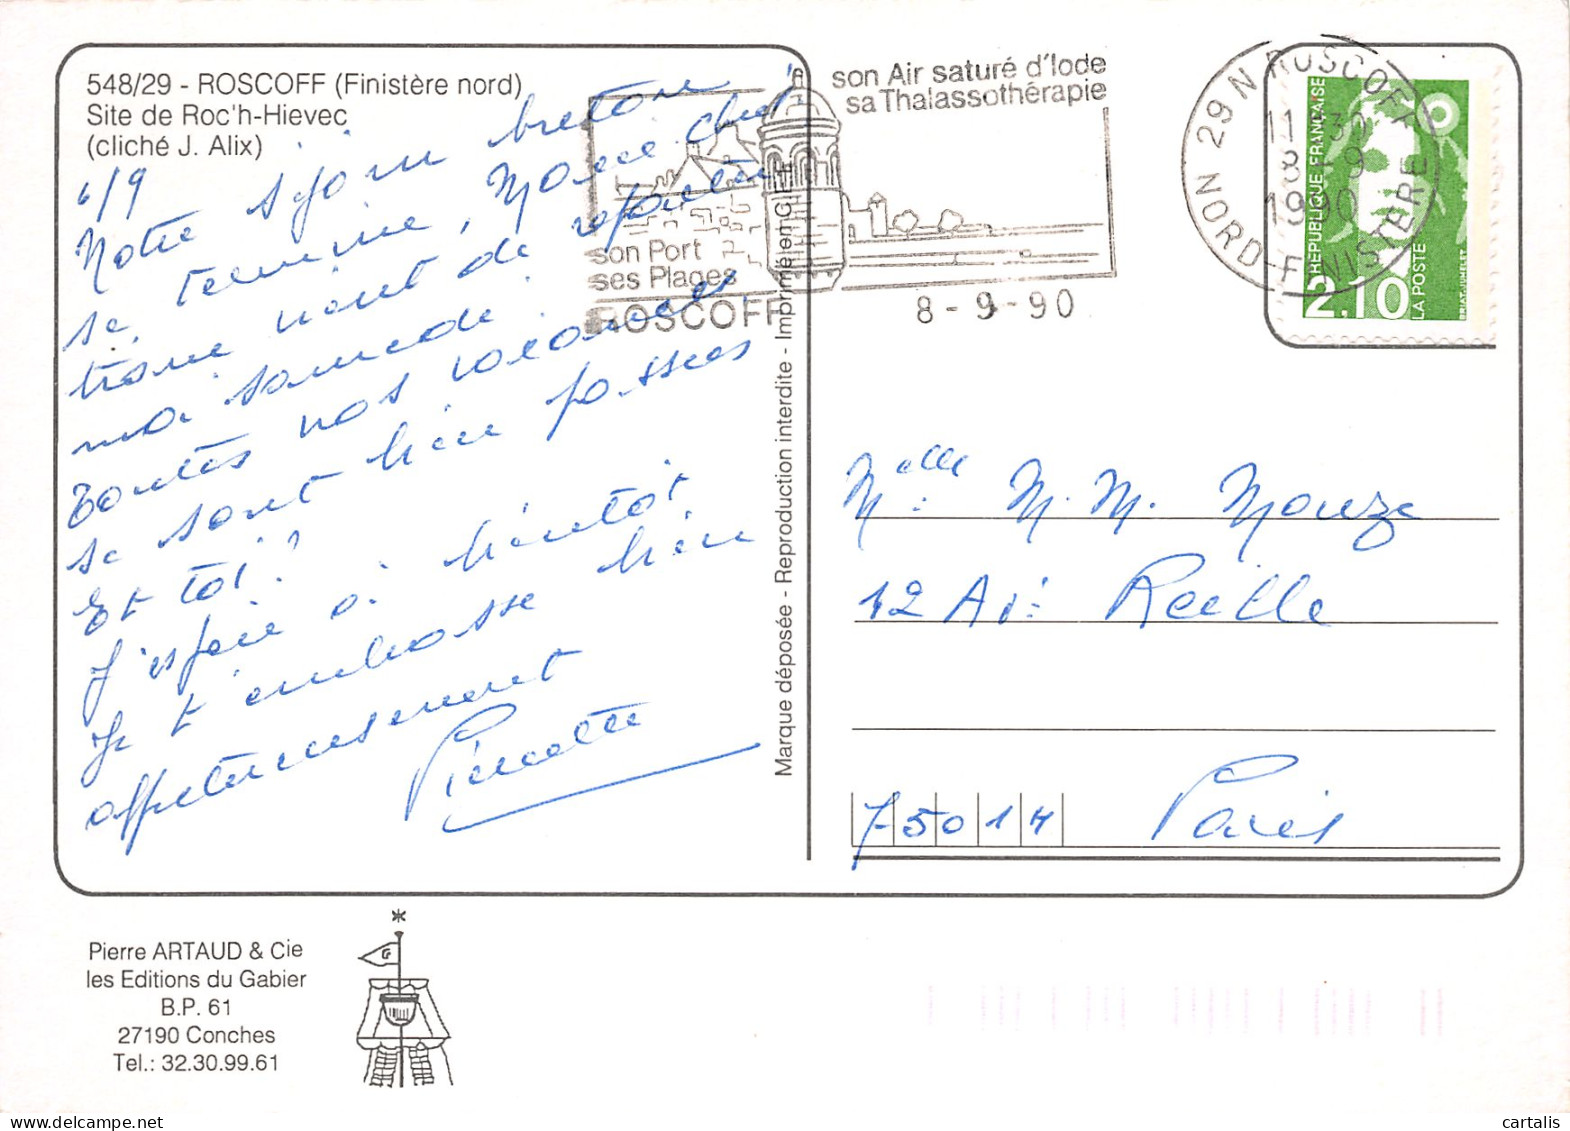 548/29 - ROSCOFF (Finistère nord)
Site de Roc'h-Hievec
(cliché J. Alix)
6/9
Notre séjour breton
se termine, Marie chut
trouve vient de repartir
moi samedi.
Toutes nos vacances
se sont bien passées
Et toi?
J'espère à bientôt
Je t'embrasse bien
affectueusement
Pierrette
Marque déposée - Reproduction interdite - Imprimé en CEE
son Air saturé d'Iode
sa Thalassothérapie
son Port
ses Plages
ROSCOFF
8-9-90
29 N ROSCOFF
11 H 30
8 - 9
1990
NORD-FINISTERE
REPUBLIQUE FRANÇAISE
2,10
LA POSTE
BRIAT-JUMELET
Melle M. M. Mouze
12 Av: Reille
75014 Paris
Pierre ARTAUD & Cie
les Editions du Gabier
B.P. 61
27190 Conches
Tel.: 32.30.99.61
G
cartalis